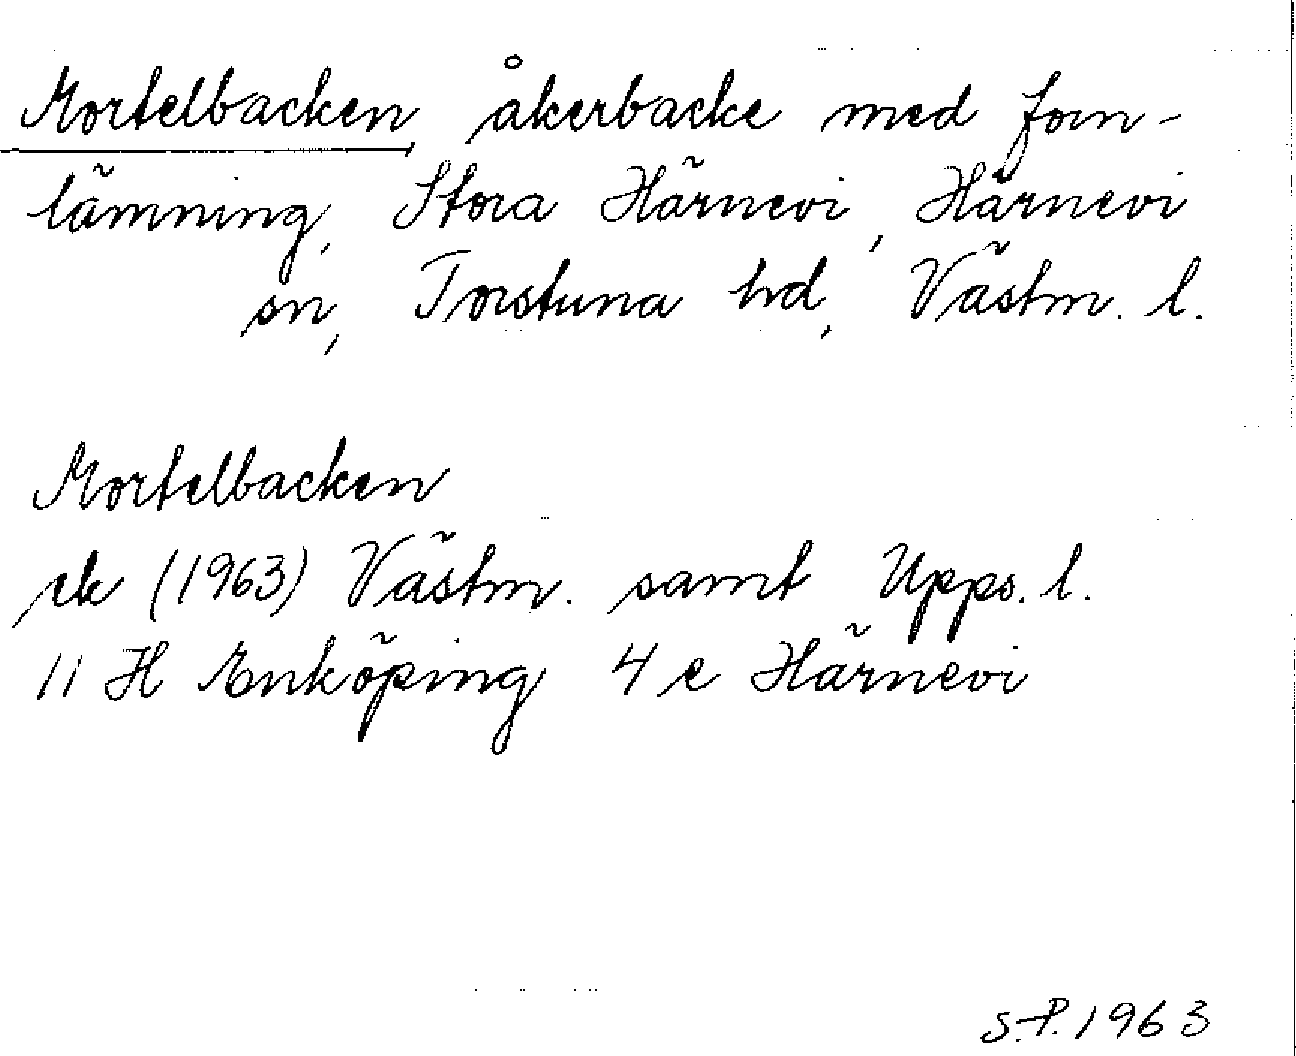 Mortelbacken, åkerbacke med forn-
lämning, Stora Härnevi, Härnevi
sn, Torstuna hd, Västm. l.
Mortelbacken
ek (1963) Västm. samt Upps. l.
11 H Enköping 4 e Härnevi
S.P. 1963